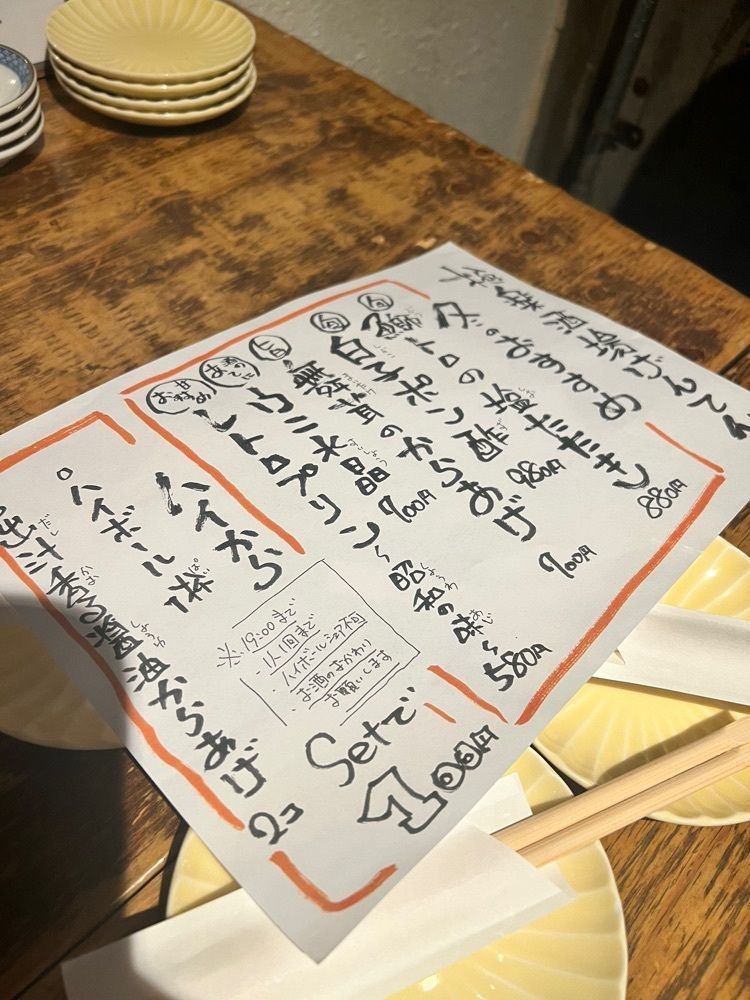 酒場げんてん
冬のおすすめ
旬 鰤トロの塩たたき 880円
旬 白子ポン酢 980円
旨 舞茸のからあげ 900円
お酒の ウニ水晶 900円
レトロプリン〜昭和の味〜 580円
ハイから
。ハイボール1杯
出汁香る醤油からあげ 2コ
※19:00まで
・1人1回まで
・ハイボールシェア不可
・お酒のおかわり
お願いします
Setで
100円